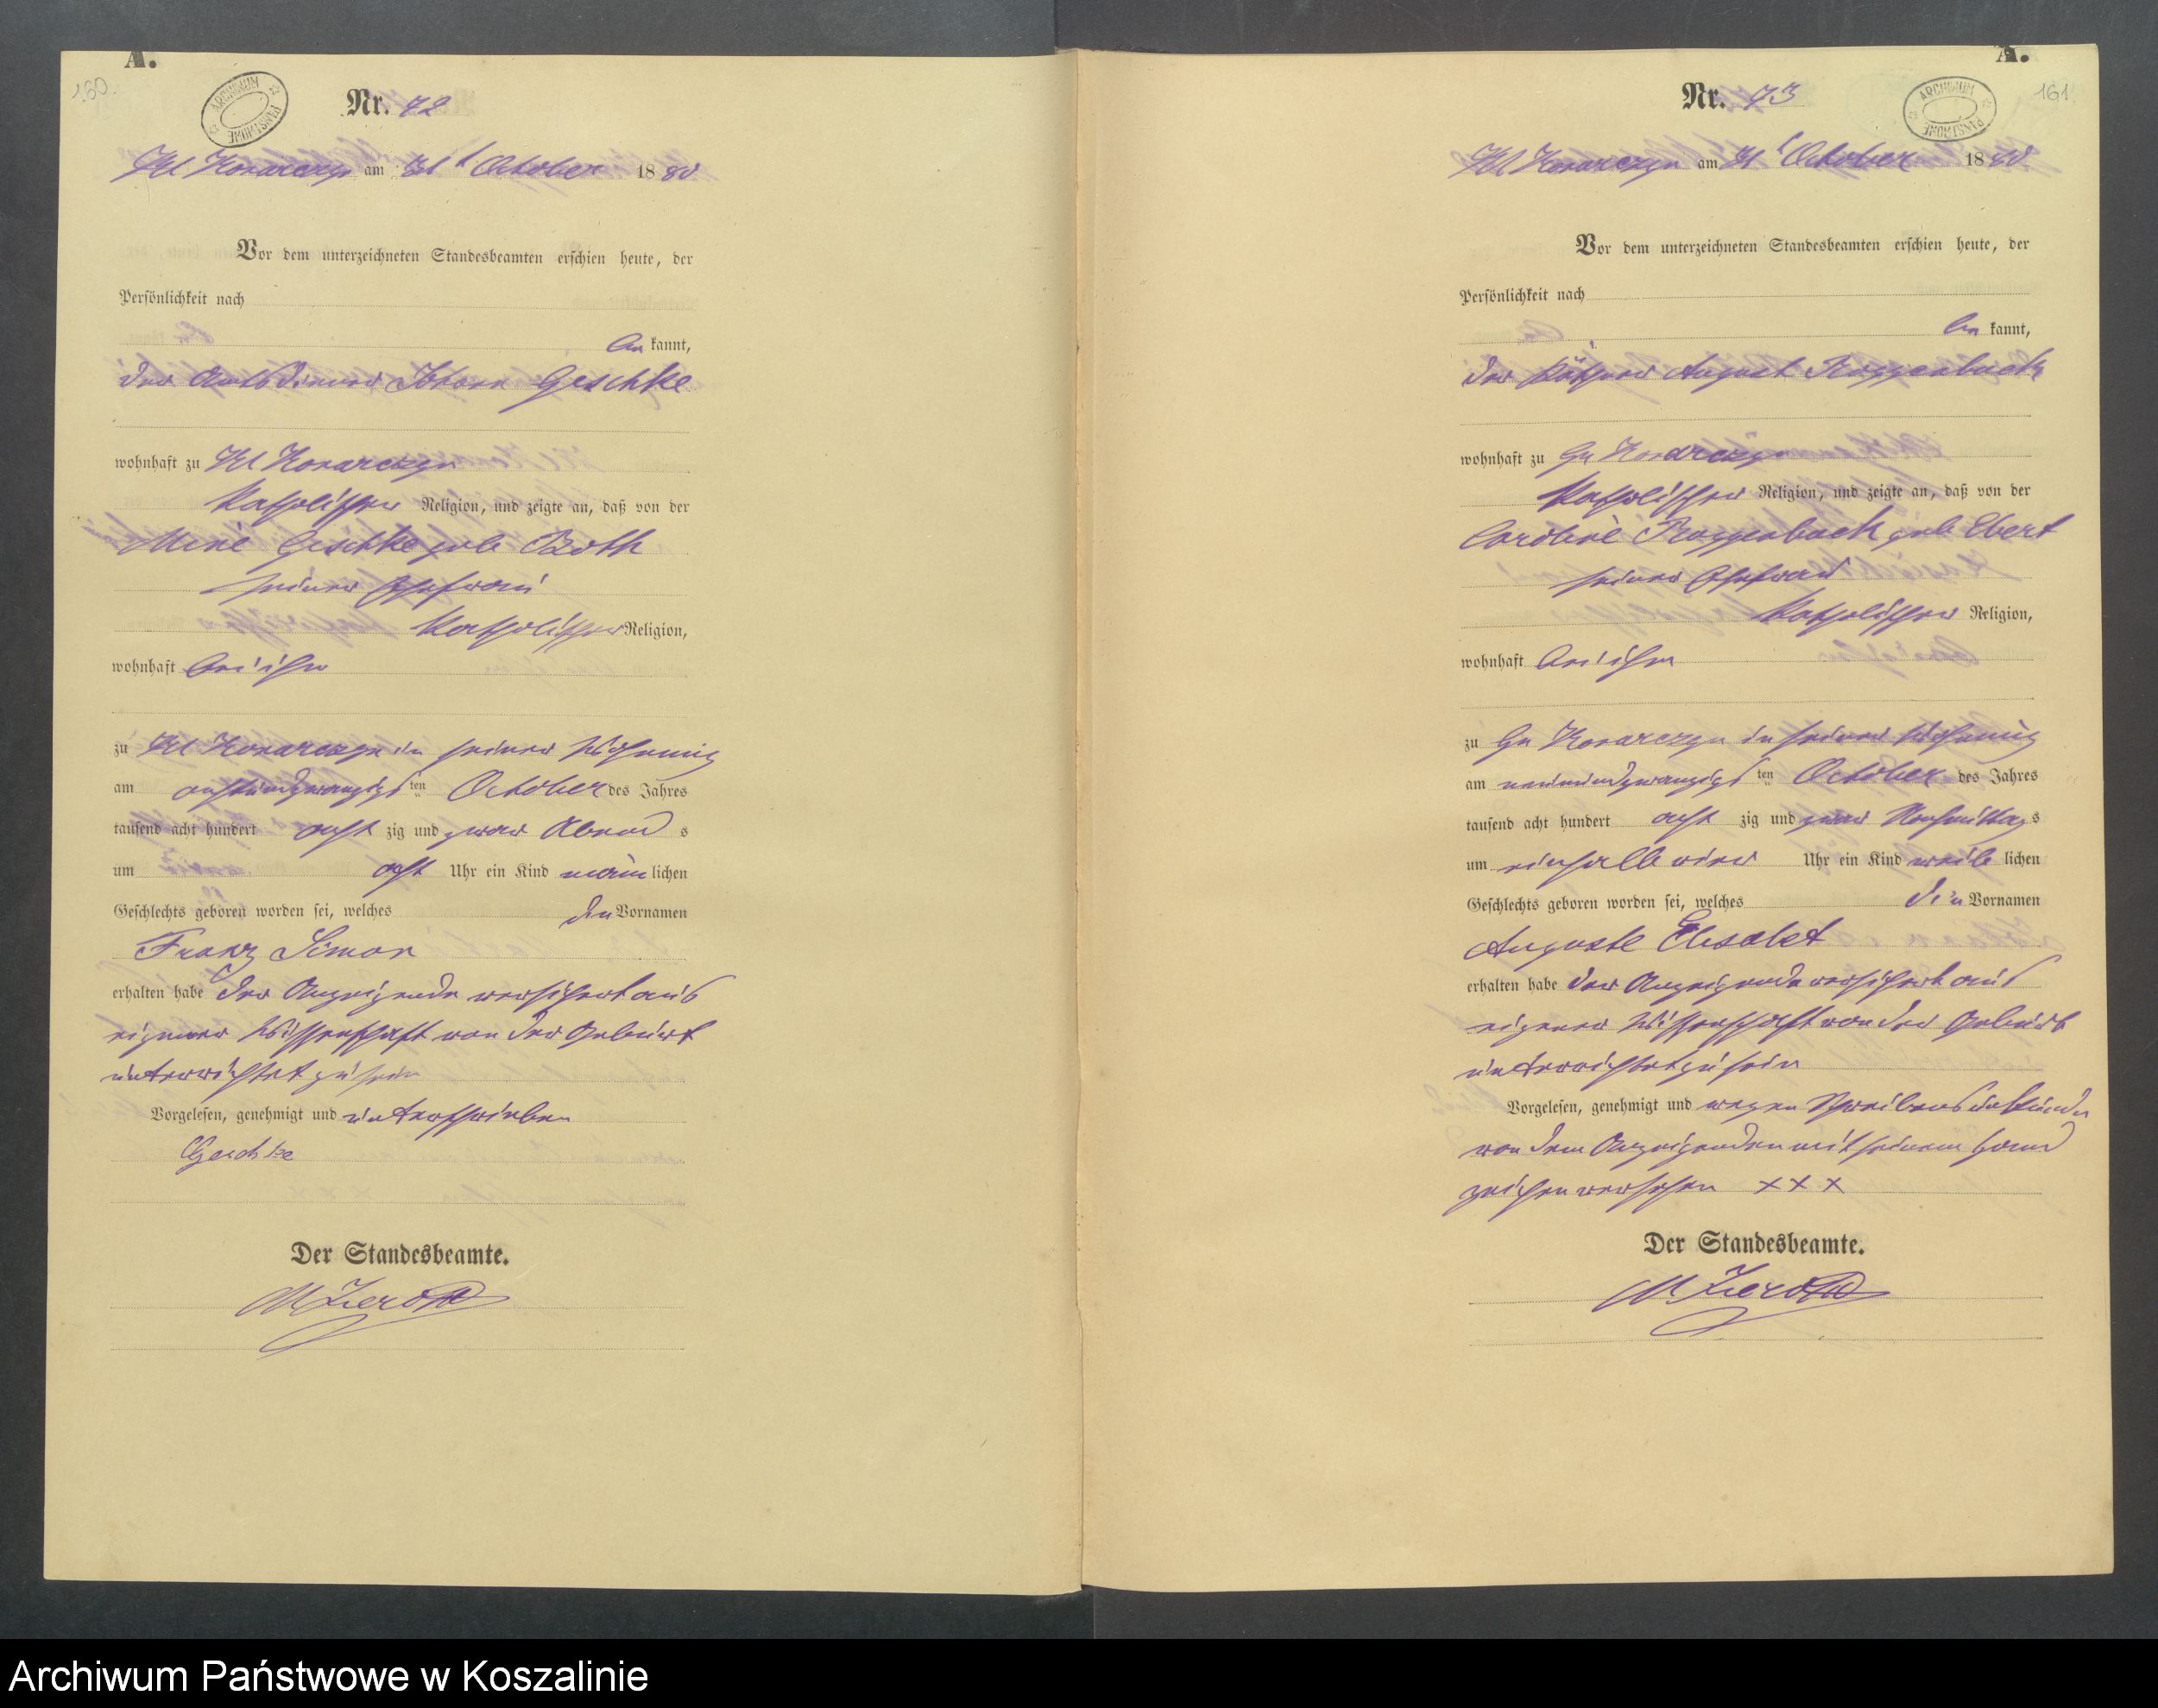 160.
A.
ARCHIWUM PAŃSTWOWE
Nr. 72
Kl Konarczyn am 31 t October 1880
Vor dem unterzeichneten Standesbeamten erschien heute, der
Persönlichkeit nach
be kannt,
der Amtsdiener Johann Geschke
wohnhaft zu Kl Konarczyn
katholischer Religion, und zeigte an, daß von der
Geschke geb Both
seiner Ehefrau
katholischer Religion,
wohnhaft bei ihm
zu Kl Konarczyn in seiner Wohnung
am achtundzwanzigs ten October des Jahres
tausend acht hundert acht zig und zwar Abend s
um acht Uhr ein Kind mänlichen
Geschlechts geboren worden sei, welches den Vornamen
Franz Simon
erhalten habe der Anzeigende versichert aus
eigener Wissenschaft von der Geburt
unterrichtet zu sein
Vorgelesen, genehmigt und unterschrieben
Geschke
Der Standesbeamte.
A.
161
ARCHIWUM PAŃSTWOWE
Nr. 73
Kl Konarczyn am 31 t October 1880
Vor dem unterzeichneten Standesbeamten erschien heute, der
Persönlichkeit nach
be kannt,
der August Roggenbuck
wohnhaft zu Gr Konarczyn
katholischer Religion, und zeigte an, daß von der
Caroline Roggenbuck geb Ebert
seiner Ehefrau
katholischer Religion,
wohnhaft bei ihm
zu Gr Konarczyn in seiner Wohnung
am neunundzwanzigs ten October des Jahres
tausend acht hundert acht zig und zwar Nachmittag s
um einhalb vier Uhr ein Kind weib lichen
Geschlechts geboren worden sei, welches die Vornamen
Auguste Elisabet
erhalten habe der Anzeigende versichert aus
eigener Wissenschaft von der Geburt
unterrichtet zu sein
Vorgelesen, genehmigt und wegen Schreibensunkunde
von dem Anzeigenden mit seinem Hand
zeichen versehen x x x
Der Standesbeamte.
Archiwum Państwowe w Koszalinie